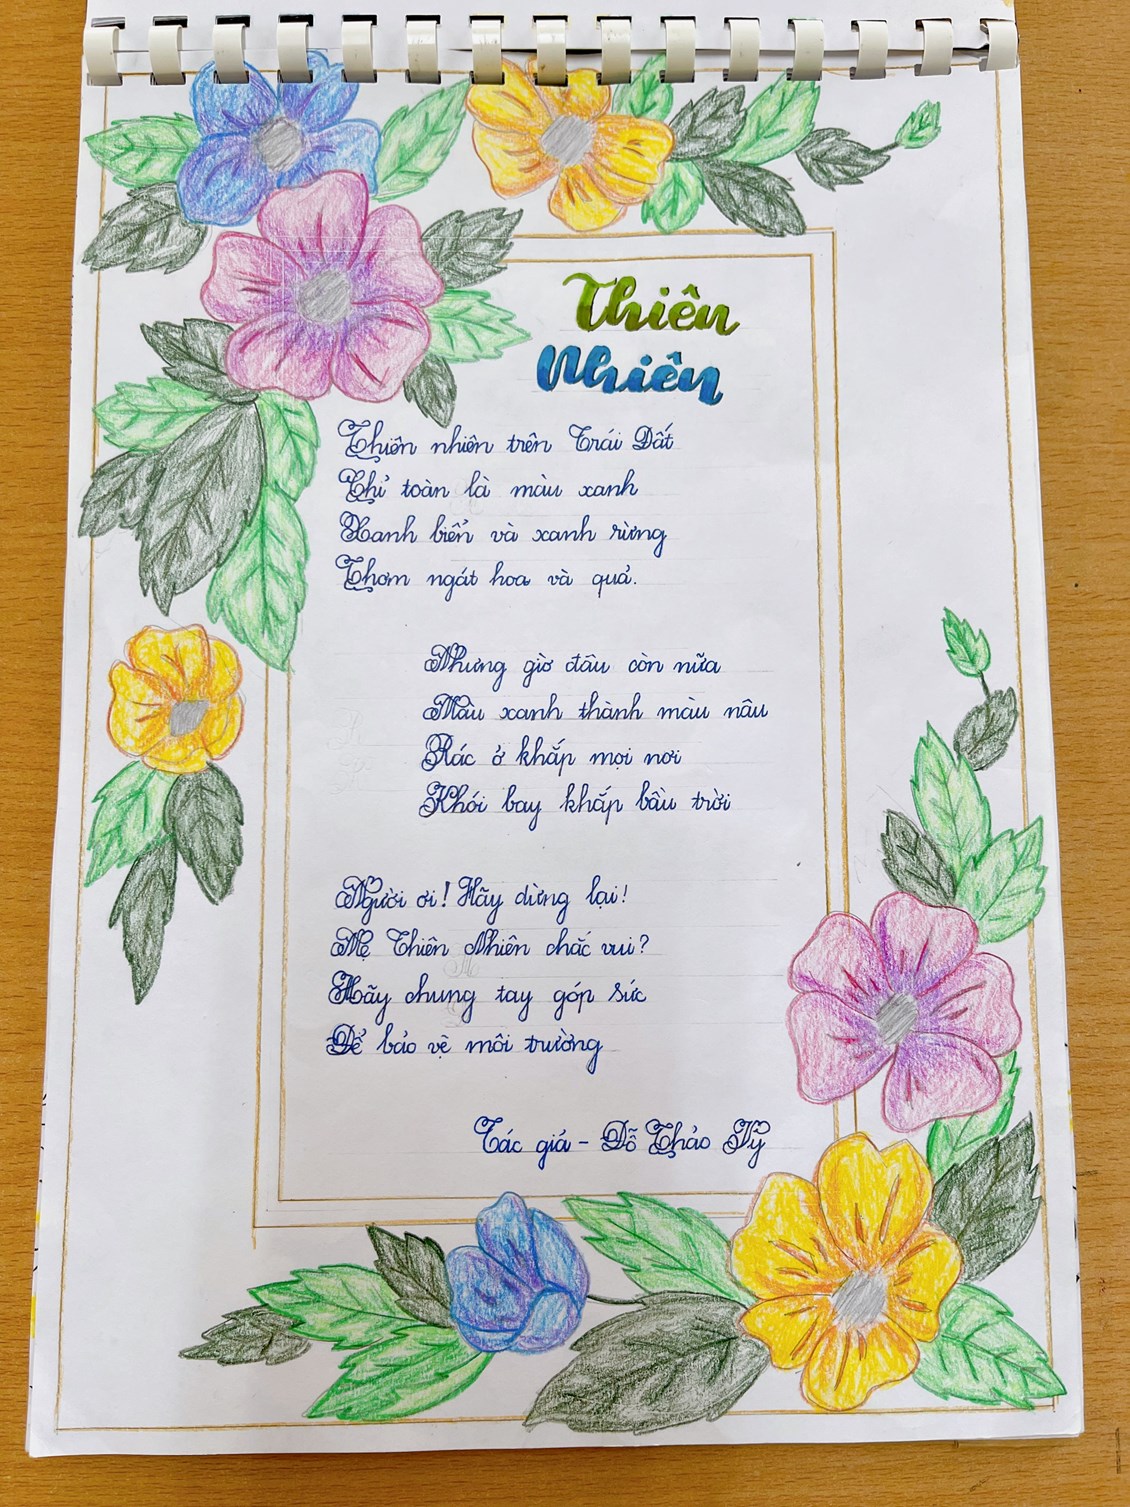 Thiên
Nhiên
Thiên nhiên trên Trái Đất
Chỉ toàn là màu xanh
Xanh biển và xanh rừng
Thơm ngát hoa và quả.
Nhưng giờ đâu còn nữa
Màu xanh thành màu nâu
Rác ở khắp mọi nơi
Khói bay khắp bầu trời
Người ơi! Hãy dừng lại!
Mẹ Thiên Nhiên chắc vui?
Hãy chung tay góp sức
Để bảo vệ môi trường
Tác giả - Đỗ Thảo Vỹ